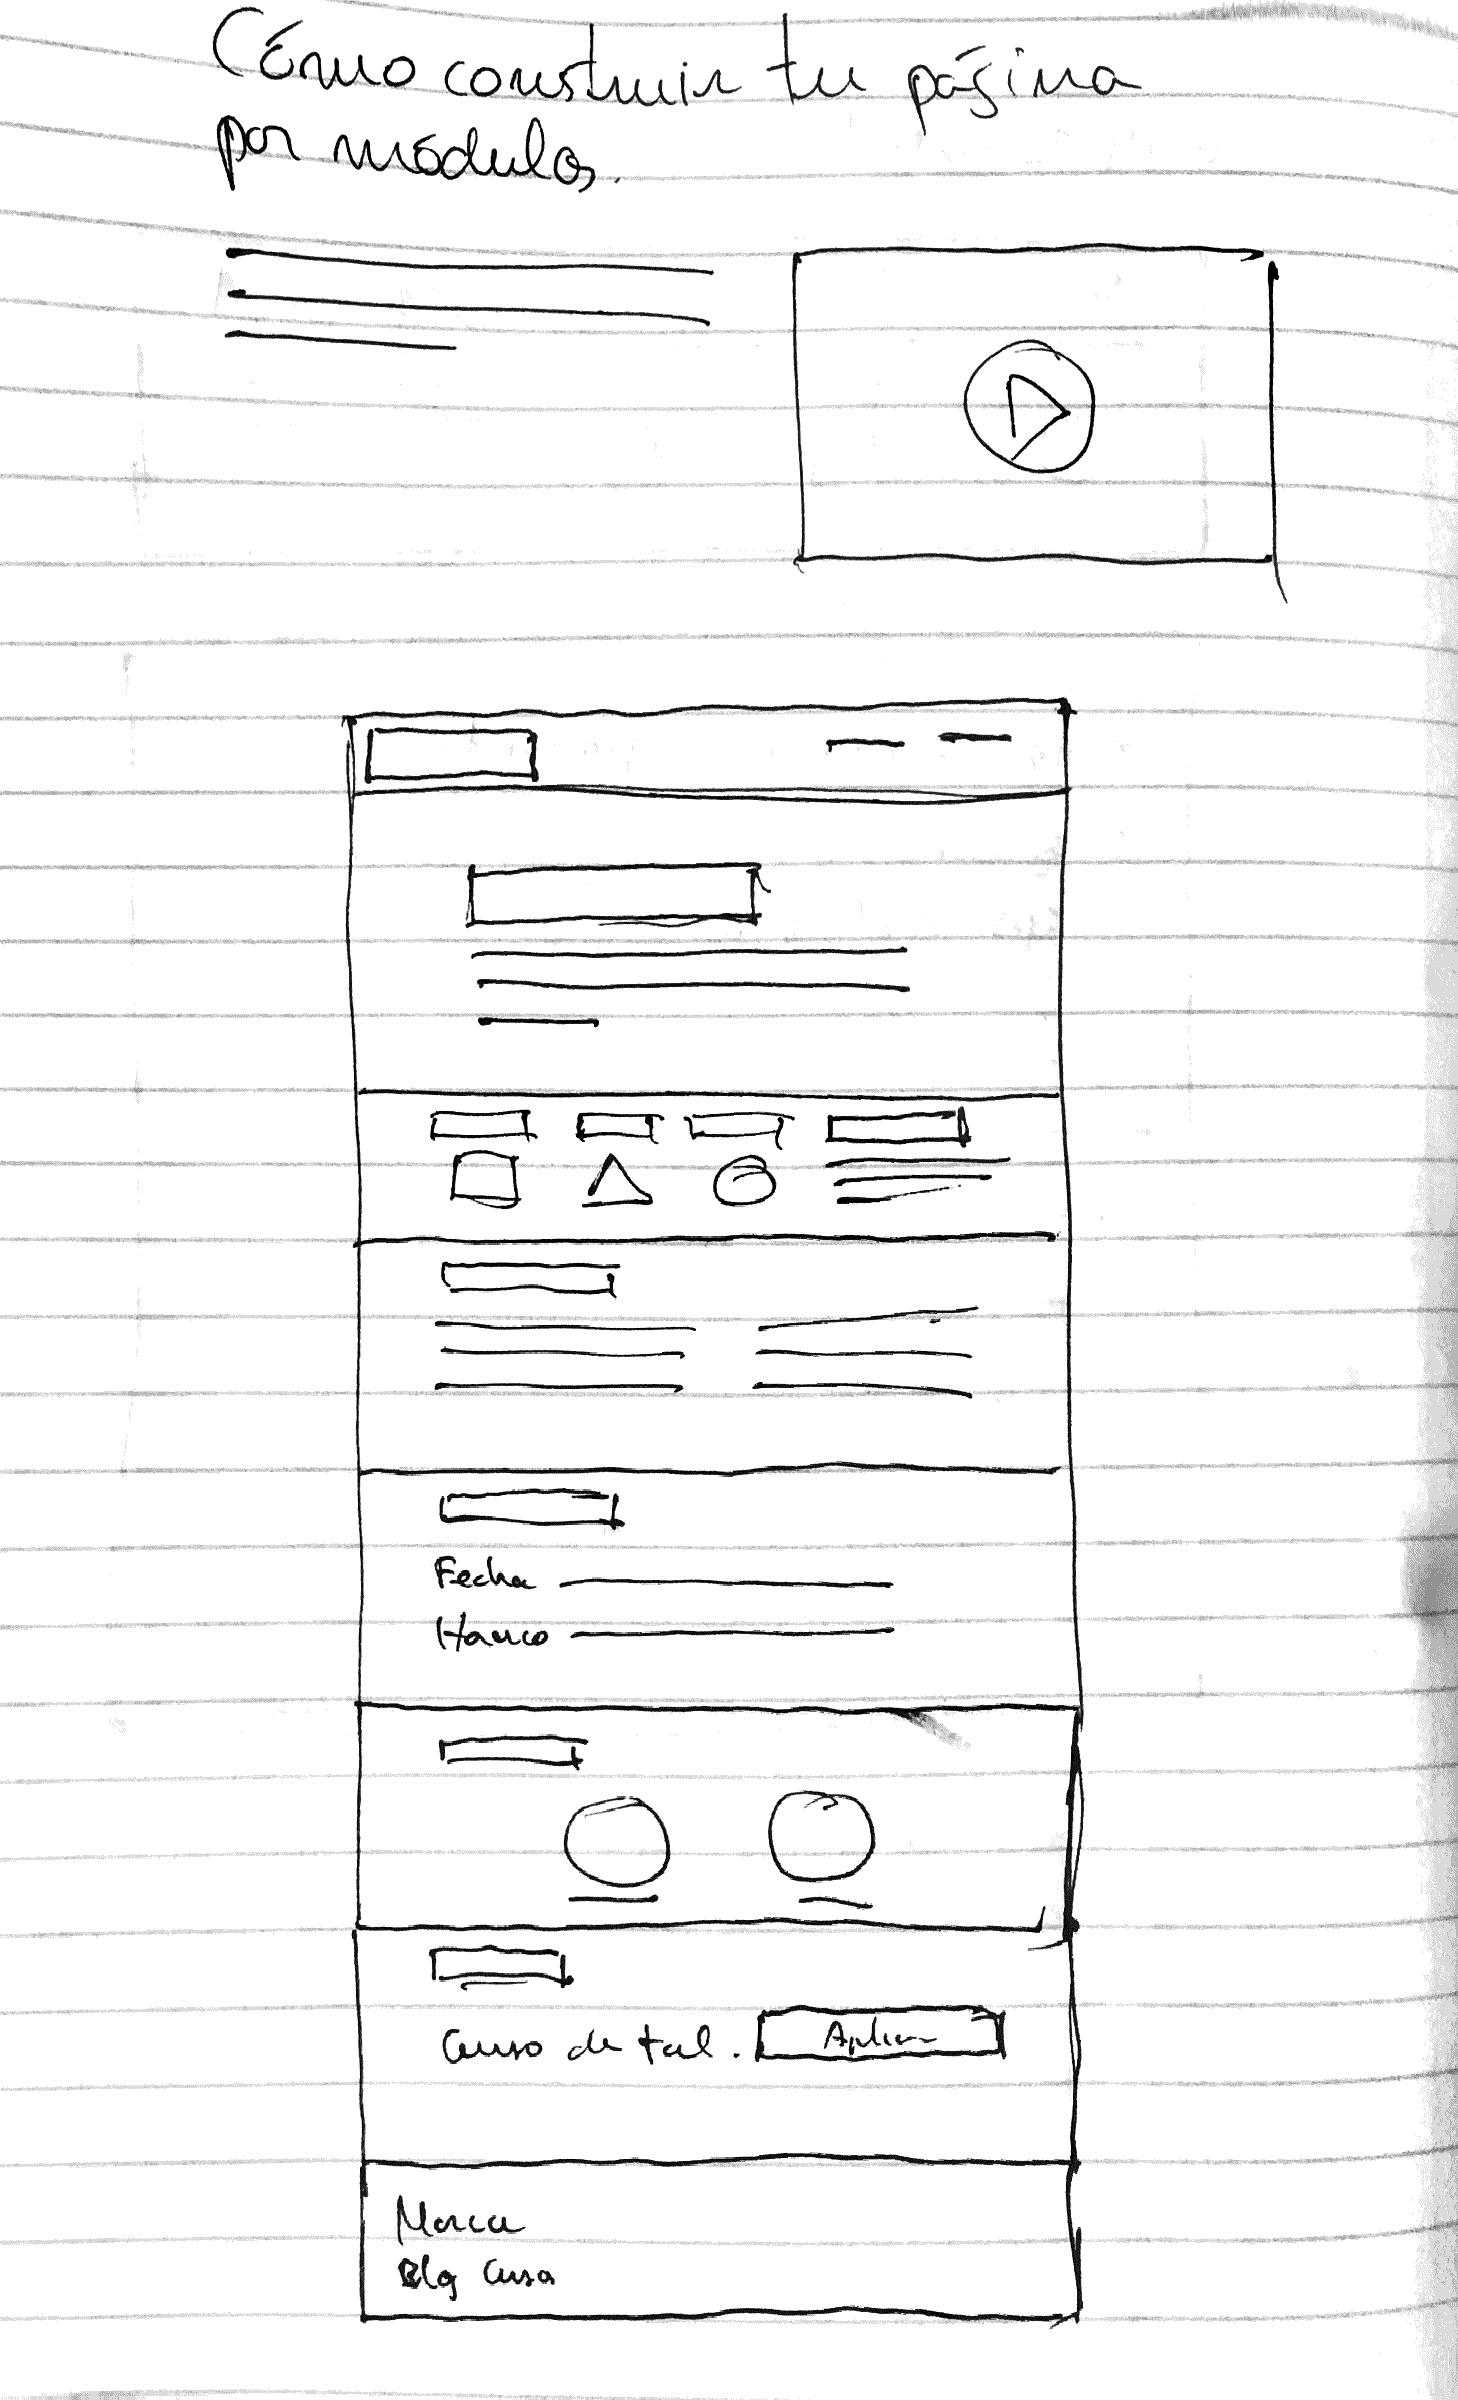 Cómo construir tu página
por módulos.
Fecha
Horario
Curso de tal.
Aplicar
Marca
Blog Curso